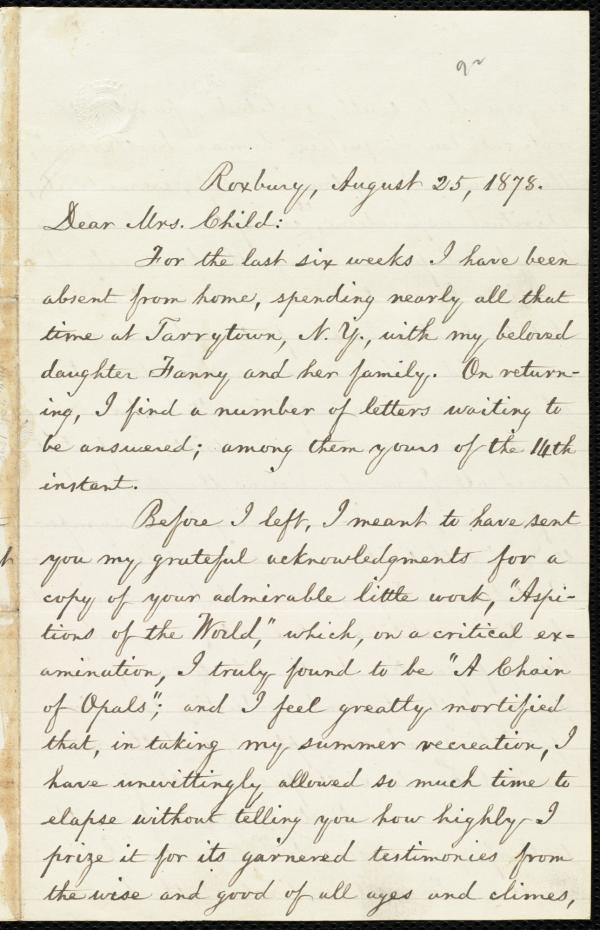 Roxbury, August 25, 1878.
Dear Mrs. Child:
For the last six weeks I have been
absent from home, spending nearly all that
time at Tarrytown, N. Y., with my beloved
daughter Fanny and her family. On return-
ing, I find a number of letters waiting to
be answered; among them yours of the 14th
instant.
Before I left, I meant to have sent
you my grateful acknowledgments for a
copy of your admirable little work, "Aspi-
tions of the World," which, on a critical ex-
amination, I truly found to be "A Chain
of Opals"; and I feel greatly mortified
that, in taking my summer recreation, I
have unwittingly allowed so much time to
elapse without telling you how highly I
prize it for its garnered testimonies from
the wise and good of all ages and climes,